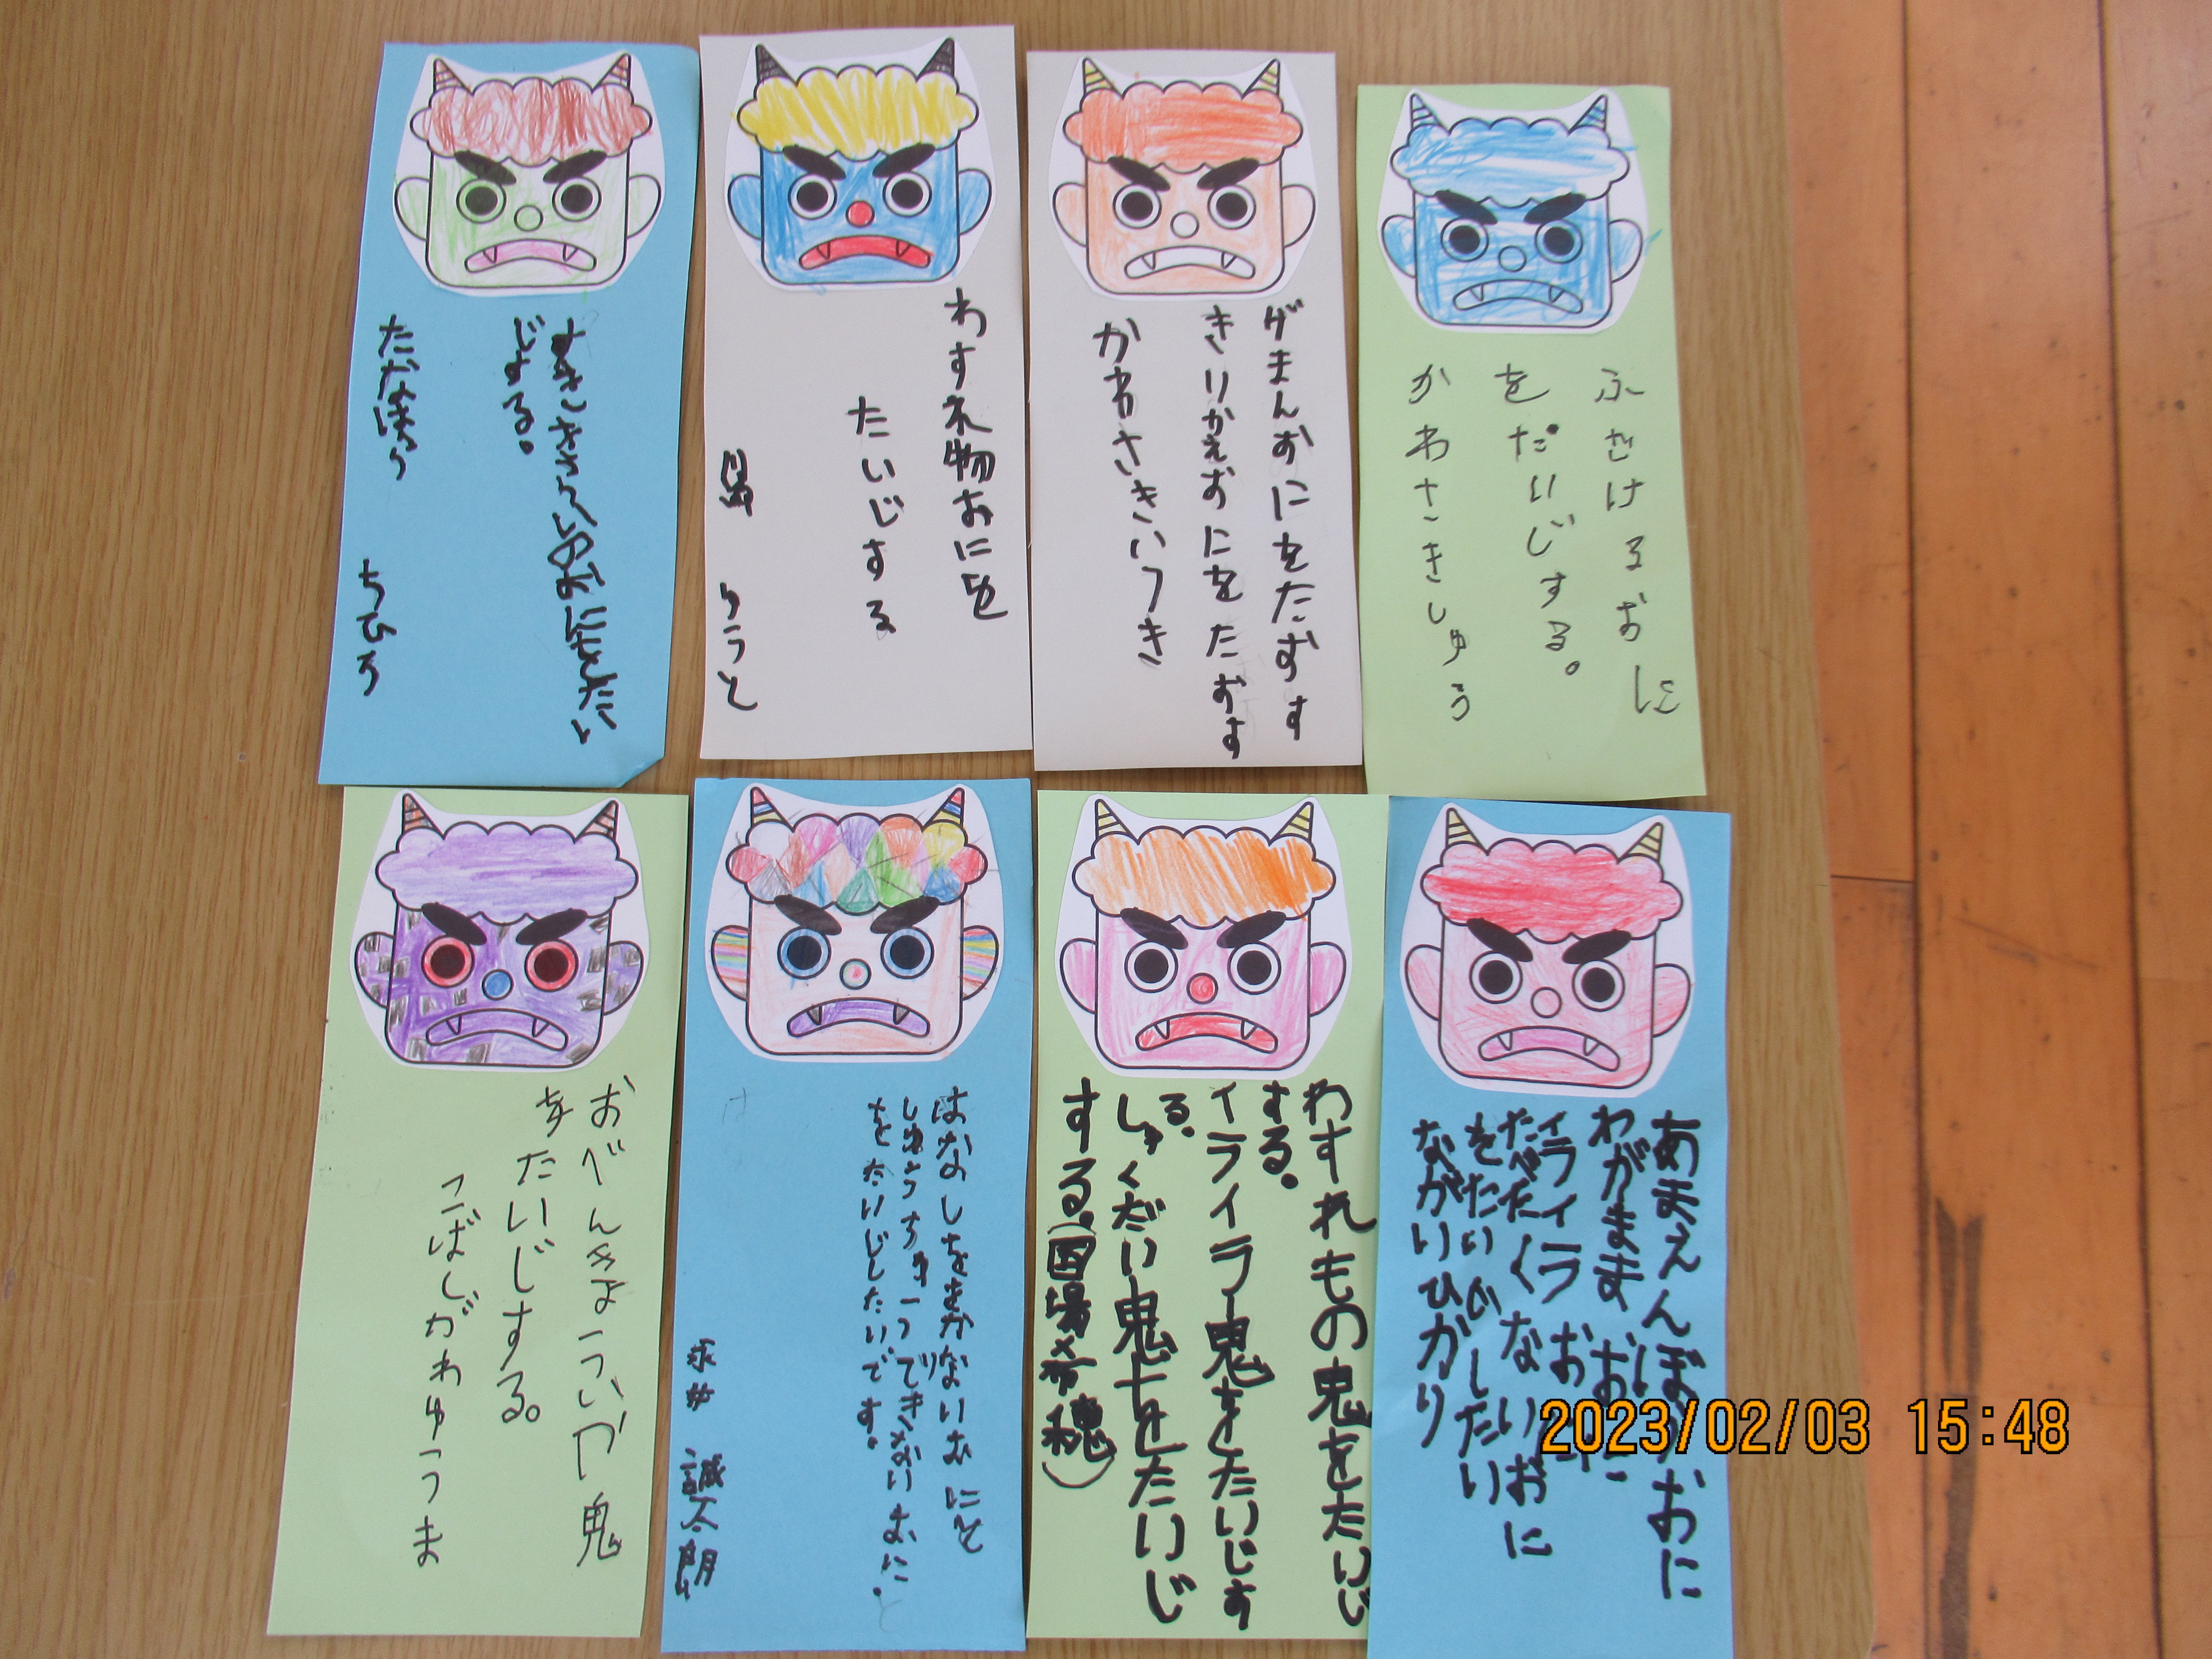 すききらいのおにをたい
じする。
ちひろ
わすれ物おにを
たいじする
りうと
ゲまんおにをたおす
きりかえおにをたおす
かわさきいつき
ふざけるおに
をたいじする。
かわさきしゅう
おべんきょういや鬼
をたいじする。
こばしがわゆうま
はなしをきかないおにと
しゅうちゅうできないおに
をたいじしたいです。
誠太朗
わすれもの鬼をたいじ
する。
イライラ鬼をたいじす
る。
しゅくだい鬼をたいじ
する。(国場希穂)
あまえんぼうおに
わがままおに
イライラおに
たべたくないおに
をたいじしたい
ながいひかり
2023/02/03 15:48